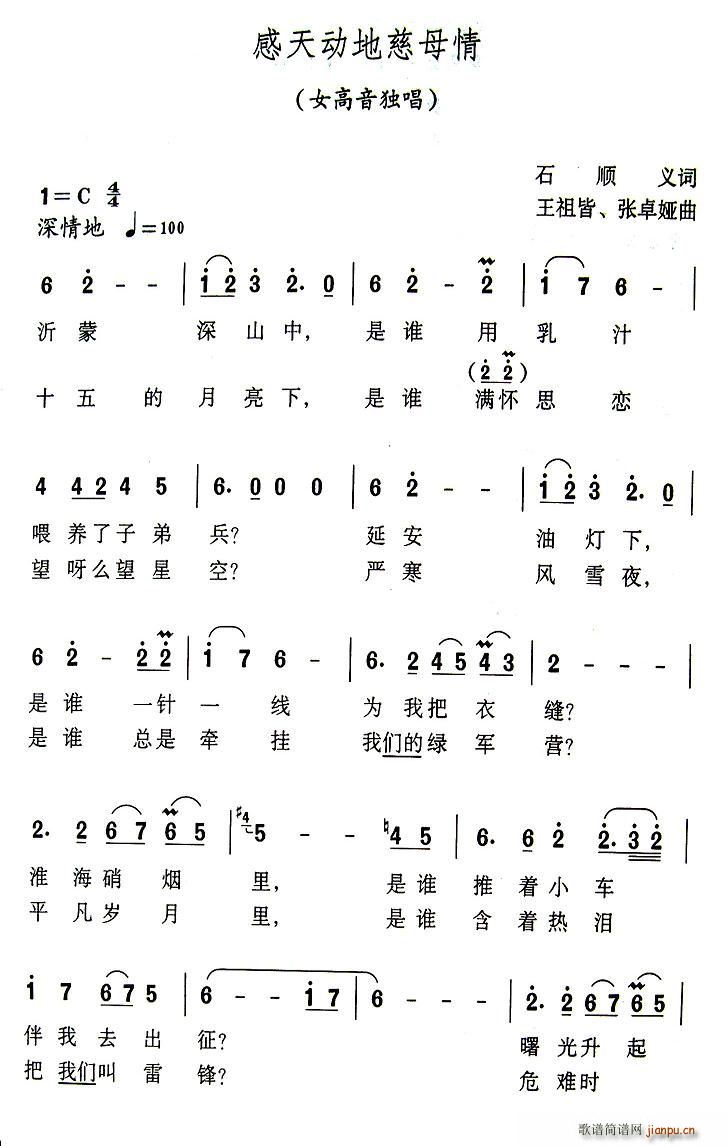 感天动地慈母情
（女高音独唱）
石顺义词
1=C 4/4
王祖皆、张卓娅曲
深情地 ♩=100
6 2̇ - - | 1̇ 2̇ 3̇ 2̇. 0 | 6 2̇ - 2̇ | 1̇ 7 6 - |
沂蒙 深山中， 是谁用乳汁
(2̇ 2̇)
十五的月亮下， 是谁满怀思恋
4 4 2 4 5 | 6. 0 0 0 0 | 6 2̇ - - | 1̇ 2̇ 3̇ 2̇. 0 |
喂养了子弟兵？ 延安油灯下，
望呀么望星空？ 严寒风雪夜，
6 2̇ - 2̇ 2̇ | 1̇ 7 6 - | 6. 2 4 5 4 3 | 2 - - - |
是谁一针一线 为我把衣缝？
是谁总是牵挂 我们的绿军营？
2. 2 6 7 6 5 | #4 5 - - ♮4 5 | 6. 6 2̇ 2̇. 3̇ 2̇ |
淮海硝烟里， 是谁推着小车
平凡岁月里， 是谁含着热泪
1̇ 7 6 7 5 | 6 - - 1̇ 7 | 6 - - - | 2̇. 2̇ 6 7 6 5 |
伴我去出征？ 曙光升起
把我们叫雷锋？ 危难时
歌谱简谱网
jianpu.cn